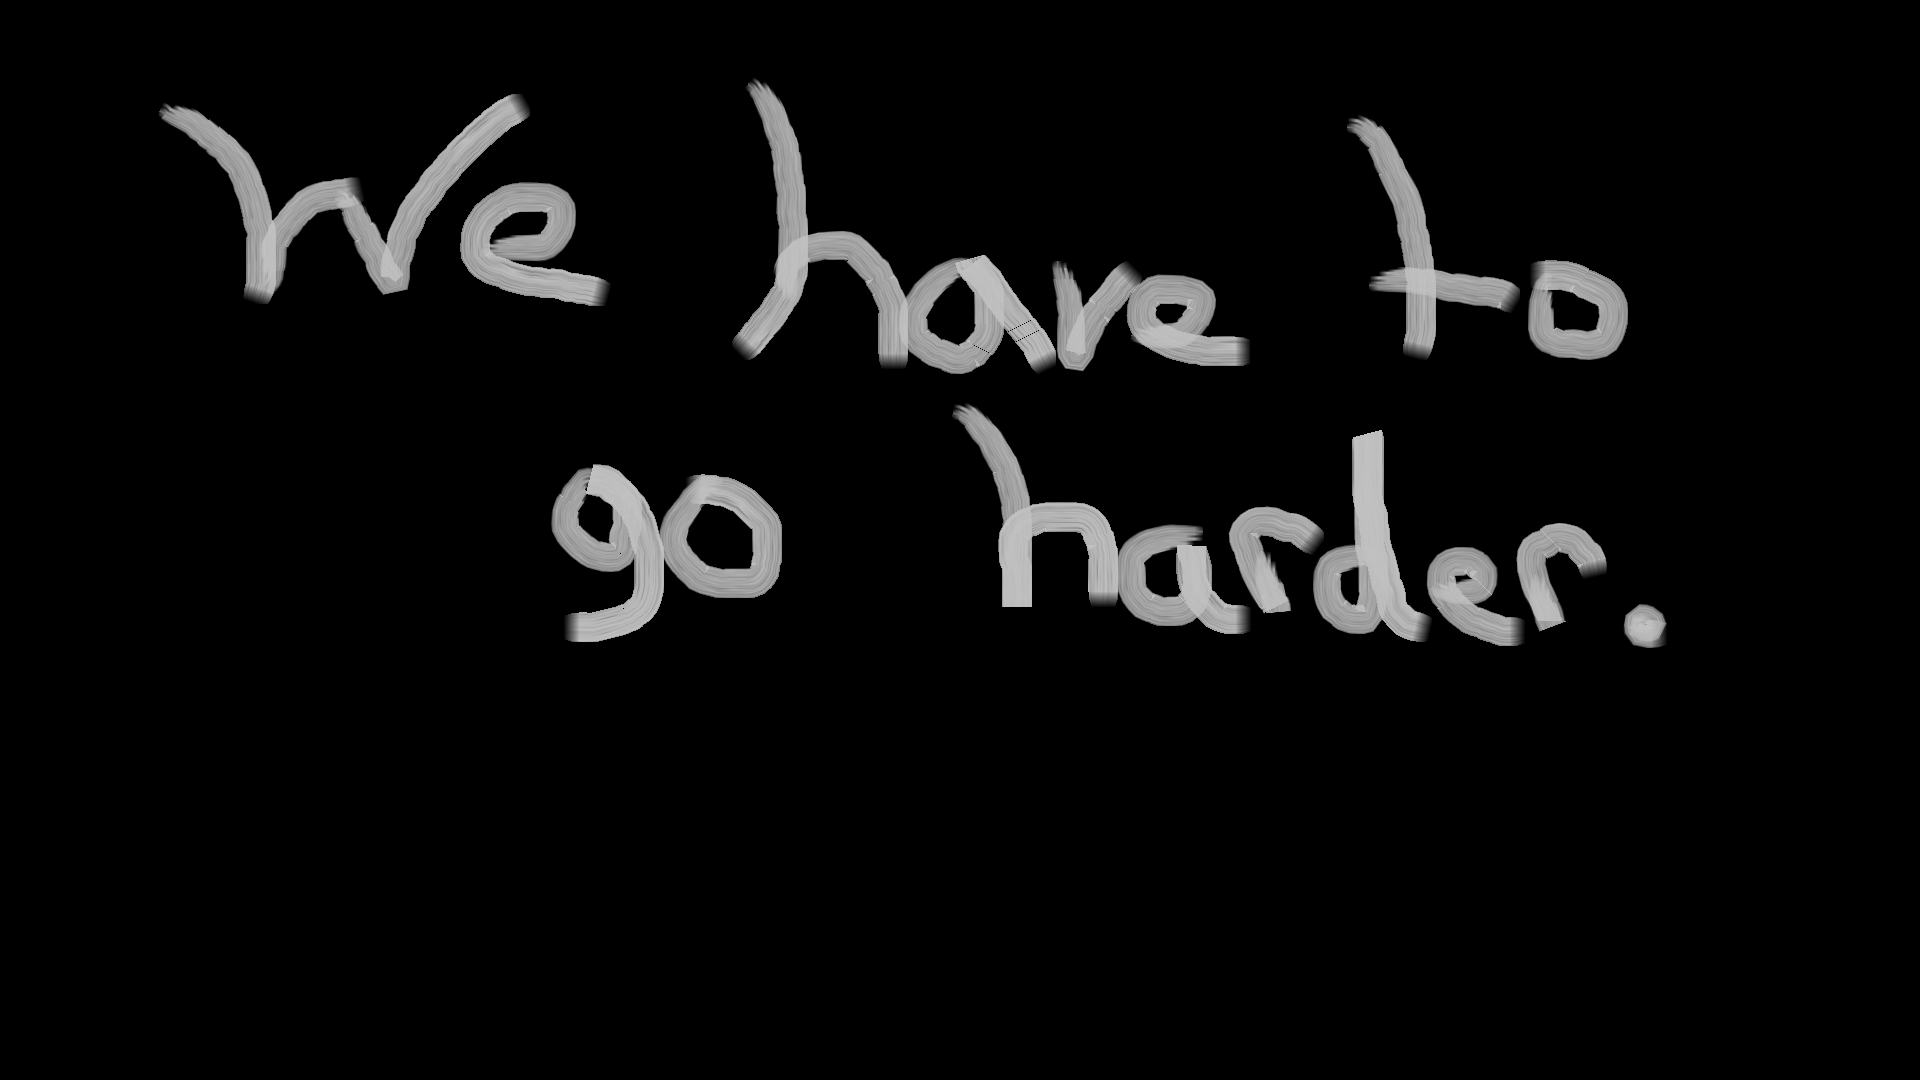 We have to
go harder.